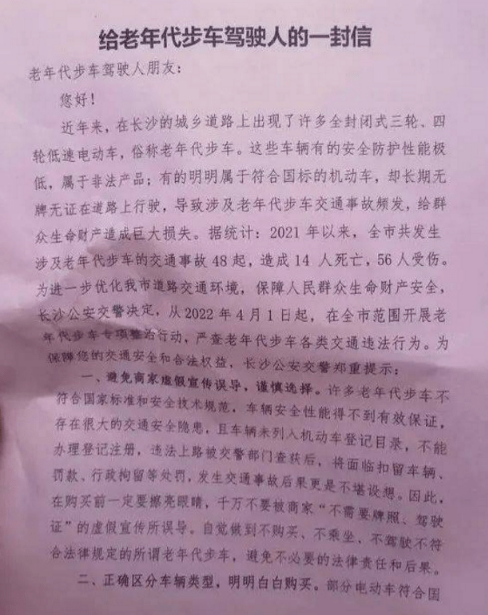 给老年代步车驾驶人的一封信
老年代步车驾驶人朋友：
您好！
近年来，在长沙的城乡道路上出现了许多全封闭式三轮、四
轮低速电动车，俗称老年代步车。这些车辆有的安全防护性能极
低，属于非法产品；有的明明属于符合国标的机动车，却长期无
牌无证在道路上行驶，导致涉及老年代步车交通事故频发，给群
众生命财产造成巨大损失。据统计：2021 年以来，全市共发生
涉及老年代步车的交通事故 48起，造成 14 人死亡，56人受伤。
为进一步优化我市道路交通环境，保障人民群众生命财产安全，
长沙公安交警决定，从2022 年 4 月 1日起，在全市范围开展老
年代步车专项整治行动，严查老年代步车各类交通违法行为。为
保障您的交通安全和合法权益，长沙公安交警郑重提示：
一、避免商家虚假宣传误导，谨慎选择。许多老年代步车不
符合国家标准和安全技术规范，车辆安全性能得不到有效保证，
存在很大的交通安全隐患，且车辆未列入机动车登记目录，不能
办理登记注册，违法上路被交警部门查获后，将面临扣留车辆、
罚款、行政拘留等处罚，发生交通事故后果更是不堪设想。因此，
在购买前一定要擦亮眼睛，千万不要被商家“不需要牌照、驾驶
证”的虚假宣传所误导。自觉做到不购买、不乘坐、不驾驶不符
合法律规定的所谓老年代步车，避免不必要的法律责任和后果。
二、正确区分车辆类型，明明白白购买。部分电动车符合国